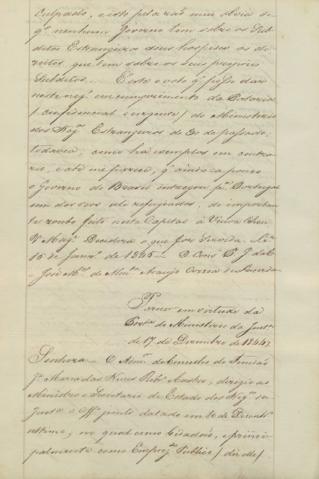 culpado, e isto pela razão mui obvia de
q. nenhum Governo tem sobre os Sub-
ditos Estrangeiros seus hospedes os di-
reitos que tem sobre os seus proprios
Subditos. Este o voto q. posso dar
neste neg.º em cumprimento da Portaria
(confidencial e urgente) do Ministerio
dos Neg.os Estrangeiros de do passado:
todavia, como ha exemplos em contra-
rio, e até me parece, q. ainda a pouco
o Governo do Brazil entregou p.ª Portugal
um dos seus refugiados, do importan-
te roubo feito nesta Capital á Viuva
V. Mag.e Decidirá o que for Servida. Lx.ª
15 de Janr.º de 1845 — O Cons.º P. G. da C.
José M.el de Alm.da Araujo Correa de Lacerda
Parecer em virtude da
Port.ª do Ministerio da Just.ª
de 17 de Dezembro de 1844
Senhora — O Adm.or do Concelho de
J.e Maria das Neves Reb.º dirigio ao
Ministro e Secretario de Estado dos Neg.os da
Justiça o Off.º junto datado em de Dezemb.º
ultimo, no qual como Cidadão, e princi-
palmente como Empreg.º Publico (diz elle)